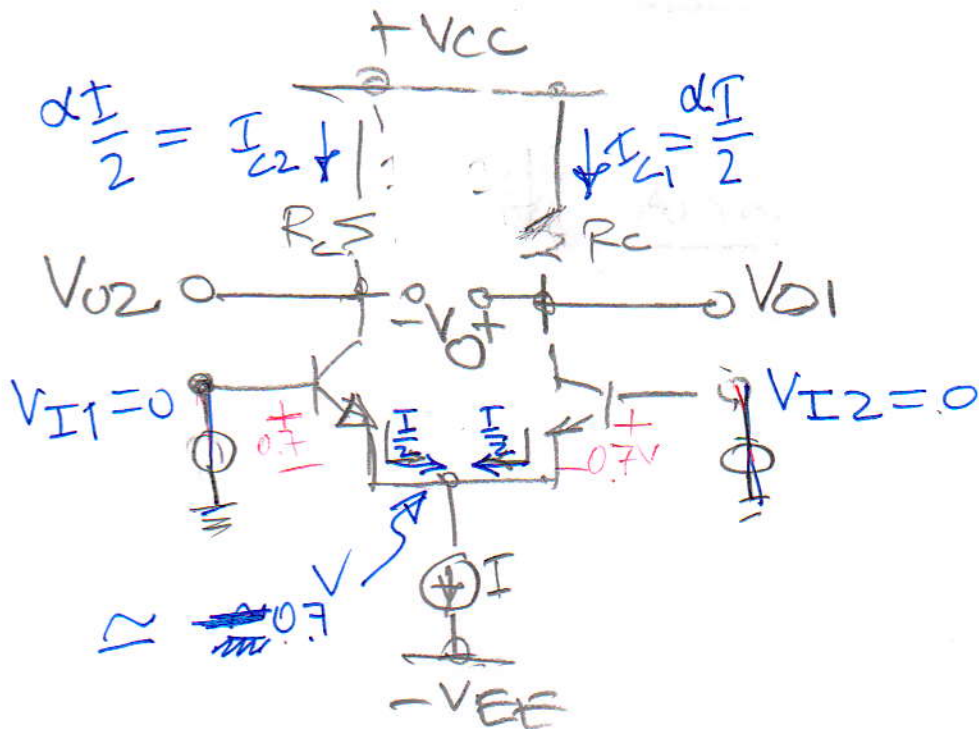 +VCC
αI/2 = I_C2 ↓
↓ I_C1 = αI/2
R_C
RC
VO2
- VO +
VO1
VI1 = 0
+ 0.7 -
I/2
I/2
+ -0.7V
VI2 = 0
≃ 0.7 V
I
-VEE